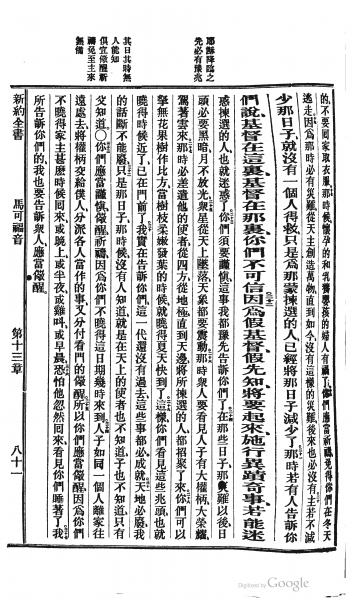 耶穌降臨之
先必有豫兆
其日其時無
人能知
俱宜儆醒祈
禱免至主來
無備
的、不要回家取衣服、那時候、懷孕的和乳養嬰孩的婦人有禍了、你們應當祈禱、免得你們在冬天
逃走、因爲那時必有災難、從天主創造萬物直到如今、沒有這樣的災難、後來也必沒有、主若不減
少那日子、就沒有一個人得救、只是爲那蒙揀選的人、已經將那日子減少了、那時若有人告訴你
們說、基督在這裏、基督在那裏、你們不可信、因爲假基督假先知、將要起來、施行異蹟奇事、若能迷
惑揀選的人、也就迷惑了、你們須要謹愼、這事我都豫先告訴你們了、在那些日子、那災難以後、日
頭必要黑暗、月不放光、衆星從天上墜落、天象都要震動、那時衆人要看見人子有大權柄大榮耀、
駕著雲來、那時必差遣他的使者、從四方、從地極直到天邊、將所揀選的人、都招聚了來、你們可以
擊無花果樹作比方、當樹枝柔嫩發葉的時候、就曉得夏天快到了、這樣、你們看見這些兆頭、也就
曉得時候近了、已在門前了、我實在告訴你們、這一代還沒有過去、這些事都必成就、天地必廢、我
的話斷不能廢、只是那日子、那時候、沒有人知道、就是在天上的使者也不知道、子也不知道、只有
父知道、〇你們應當謹愼儆醒祈禱、因爲你們不曉得這日期幾時來到、人子如同一個人離家往
遠處去、將權柄交給僕人、分派各人當作的事、又分付看門的儆醒、所以你們應當儆醒、因爲你們
不曉得家主甚麽時候回來、或晚上、或半夜、或雞叫、或早晨、恐怕他忽然回來、看見你們睡著了、我
所告訴你們的、我也要告訴衆人、應當儆醒、
新約全書 馬可福音 第十三章 八十一
Digitized by Google